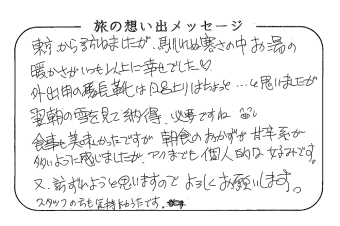 旅の想い出メッセージ
東京から訪ねましたが、馴れぬ寒さの中お湯の
暖かさがいつも以上に幸せでした♡
外出用の長靴は はちょっと…と思いましたが
翌朝の雪を見て納得、必要ですね
食事も美味しかったですが 朝食のおかずが甘辛系が
多いように感じましたが、アクまでも個人的な好みです。
又、訪ずれようと思いますので よろしくお願いします。
スタッフの方も気持よかったです。